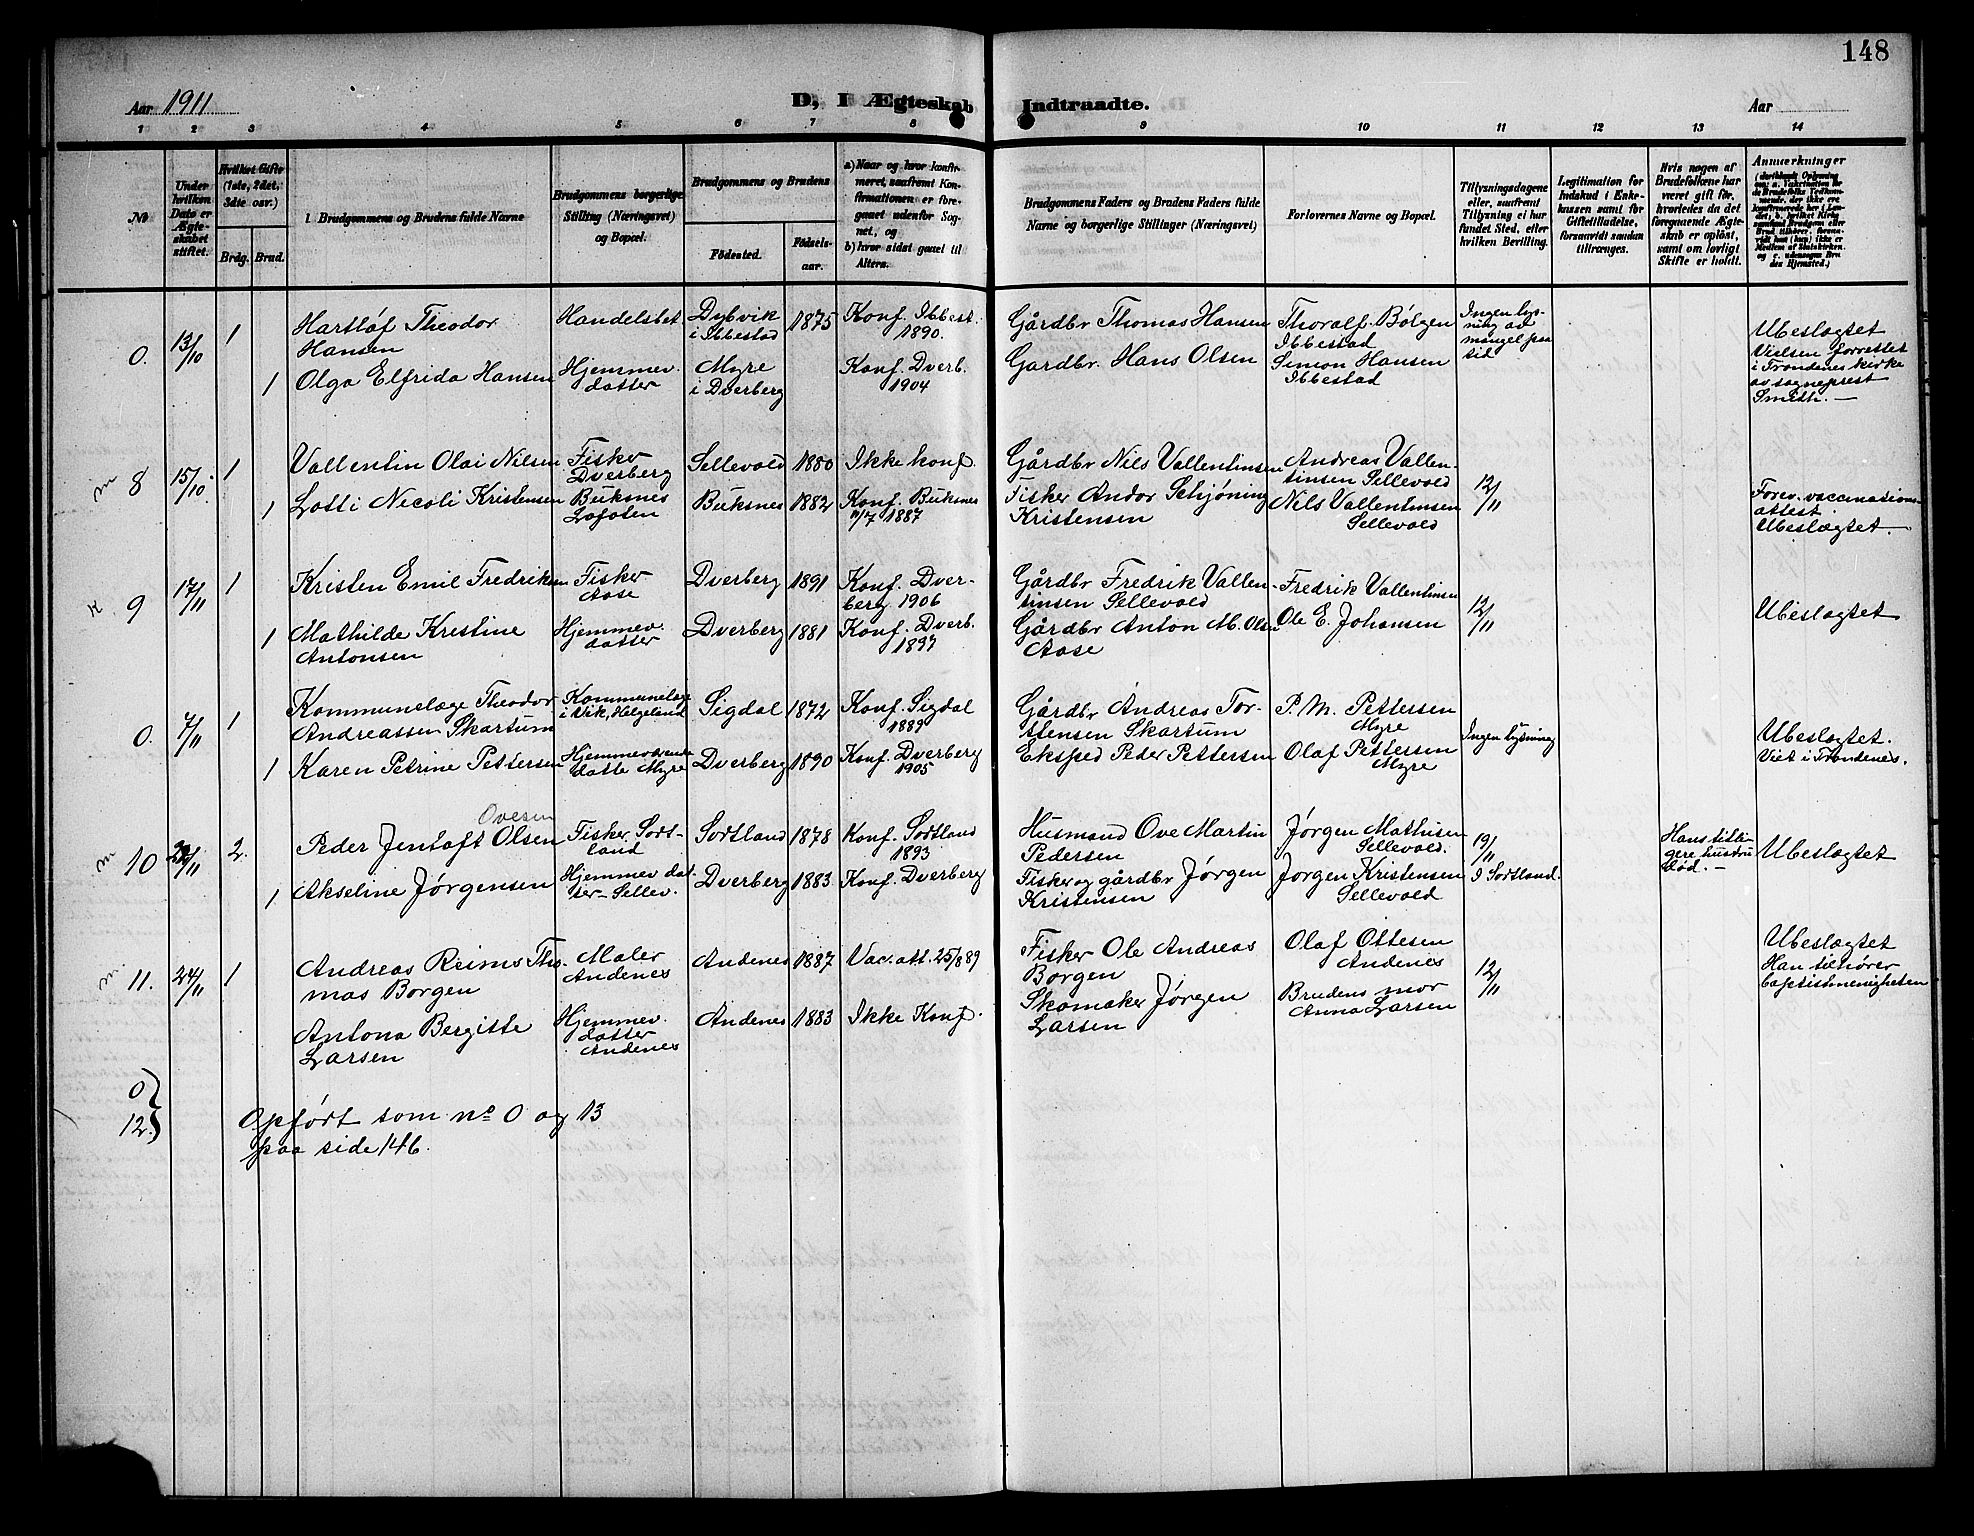 148
Aar 1911
D, I Ægteskab
Indtraadte.
Aar
1 2 3 4 5 6 7 8 9 10 11 12 13 14
№
Under
hvilken
Dato er
Ægte-
skabet
stiftet.
Hvilket Gifte
(1ste, 2det,
3die osv.)
Brdg. Brud.
Brudgommens og Brudens fulde Navne
Brudgommens borgerlige
Stilling (Næringsvei)
og Bopæl.
Brudgommens og Brudens
Fødested.
Fødsels-
aar.
a) Naar og hvor konfir-
meret, saafremt Kon-
firmationen er fore-
gaaet udenfor Sog-
net, og
b) hvor sidst gaaet til
Alters.
Brudgommens Faders og Brudens Faders fulde
Navne og borgerlige Stillinger (Næringsvei)
Forlovernes Navne og Bopæl.
Tillysningsdagene
eller, saafremt
Tillysning ei har
fundet Sted, efter
hvilken Bevilling.
Legitimation for
Indskud i Enke-
kassen samt for
Giftetilladelse,
forsaavidt saadan
tiltrænges.
Hvis nogen af
Brudefolkene har
været gift før,
hvorledes da det
foregaaende Ægte-
skab er opløst,
samt om lovligt
Skifte er holdt.
Anmerkninger
0. 13/10 1
Hartlöf Theodor
Hansen
Handelsbet.
Dybvik
i Ibbestad
1875
Konf. Ibbest.
1890.
Gårdbr Thomas Hansen
Thoralf Börgen
Ibbestad
Ingen lys-
ning av
mangel paa
tid
Ubeslægtet
Vielsen forrettet
i Trondenes kirke
av sogneprest
Smith. —
1
Olga Elfrida Hansen
Hjemmev.
datter
Myre
i Dverberg
Konf. Dverb.
1904
Gardbr. Hans Olsen
Simon Hansen
Ibbestad
m 8 15/10. 1
Vallentin Olai Nilsen
Fisker
Dverberg
Sellevold
1880
Ikke konf.
Gårdbr Nils Vallentinsen
Andreas Vallen-
tinsen Sellevold
12/11
1
Lotti Nicoli Kristensen
Buksnes
Lofoten
Buksnes
1882
Konf. Buksnes
1887
Fisker Andor Schjöning
Kristensen
Nils Vallentinsen
Sellevold
Forev. vaccinations-
attest.
Ubeslægtet.
K 9 17/11 1
Kristen Emil Fredriksen
Fisker
Aase
Dverberg
1891
Konf. Dver-
berg 1906
Gårdbr Fredrik Vallen-
tinsen Sellevold
Fredrik Vallentinsen
12/11
Ubeslægtet
1
Mathilde Kristine
Antonsen
Hjemmev.
datter
Dverberg
1881
Konf. Dverb.
1897
Gårdbr Anton M. Olsen
Aase
Ole E. Johansen
0. 7/11 1
Kommunelæge Theodor
Andreassen Skartum
Kommunelæge
i Vik, Helgeland
Sigdal
1872
Konf. Sigdal
1889
Gårdbr Andreas Tor-
stensen Skartum
P. M. Pettersen
Myre
Ingen lysning
Ubeslægtet.
Viet i Trondenes.
1
Karen Petrine Pettersen
Hjemmeværende
datte Myre
Dverberg
1890
Konf. Dverberg
1905
Eksped Peder Pettersen
Olaf Pettersen
Myre
Ovesen
m 10 /11 2.
Peder Jentoft Olsen
Fisker, Sort-
land
Sortland
1878
Konf. Sortland
1893
Husmand Ove Martin
Pedersen
Jörgen Mathisen
Sellevold.
19/11
I Sortland.
Hans tidli-
gere hustru
död. —
Ubeslægtet
1
Akseline Jörgensen
Hjemmev dat
ter – Sellev.
Dverberg
1883
Konf. Dverberg
Fisker og gårdbr Jörgen
Kristensen
Jörgen Kristensen
Sellevold
m. 11. 24/11 1
Andreas Reims Tho-
mas Borgen
Maler
Andenes
Andenes
1887
Vac. att. 25/8 89
Fisker Ole Andreas
Borgen
Olaf Ottesen
Andenes
12/11
Ubeslægtet
Han tilhörer
baptistmenigheten
Antona Bergitte
Larsen
Hjemmev.
datter
Andenes
Andenes
1883
Ikke Konf.
Skomaker Jörgen
Larsen
Brudens mor
Anna Larsen
0
12.
Opført som no 0 og 13
paa side 146.